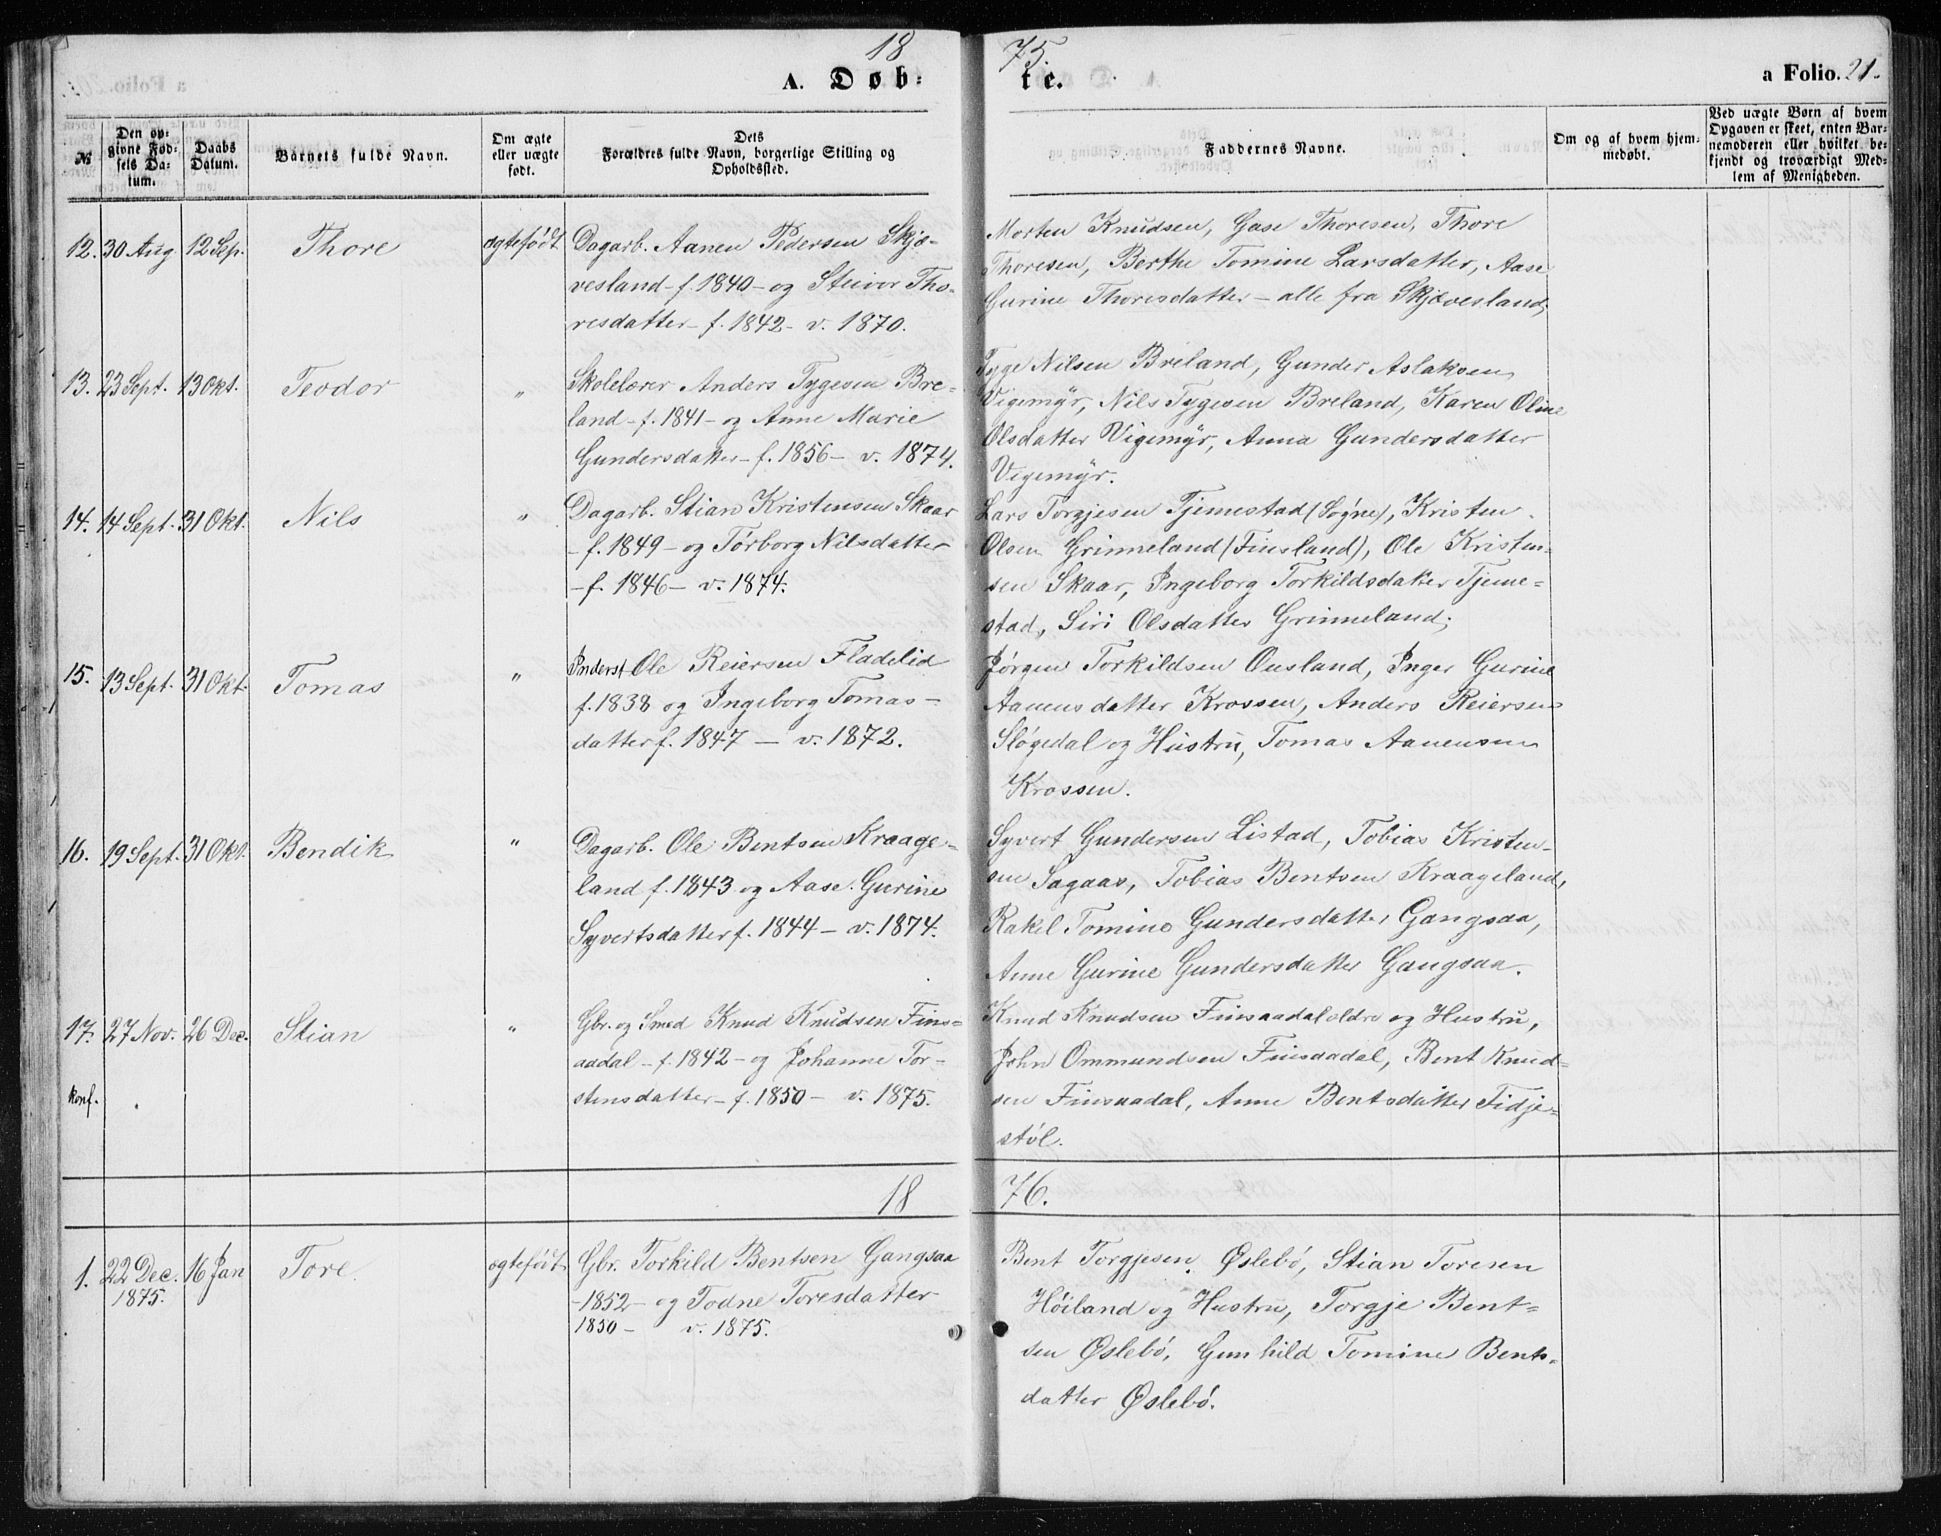 18 75.
A. Døb- te. a Folio. 21.
№
Den op-
givne Fød-
sels Da-
tum.
Daabs
Datum.
Barnets fulde Navn.
Om ægte
eller uægte
født.
Dets
Forældres fulde Navn, borgerlige Stilling og
Opholdssted.
Faddernes Navne.
Om og af hvem hjem-
medøbt.
Ved uægte Børn af hvem
Opgaven er skeet, enten Bar-
nemoderen eller hvilket be-
kjendt og troværdigt Med-
lem af Menigheden.
12. 30 Aug 12 Sep. Thore ægtefødt
Dagarb. Aanen Pedersen Skjæ-
vesland - f. 1840 - og Steivor Tho-
resdatter - f. 1842 - v. 1870.
Morten Knudsen, Gase Thoresen, Thore
Thoresen, Berthe Tomine Larsdatter, Aase
Gurine Thoresdatter - alle fra Skjævesland;
13. 23 Sept. 13 Okt. Teodor "
Skolelærer Anders Tygesen Bre-
land - f. 1841 - og Anne Marie
Gundersdatter - f. 1856 - v. 1874.
Tyge Nilsen Breland, Gunder Aslaksen
Vigemyr, Nils Tygesen Breland, Karen Oline
Olsdatter Vigemyr, Anna Gundersdatter
Vigemyr.
14. 14 Sept. 31 Okt. Nils "
Dagarb. Stian Kristensen Skaar
- f. 1849 - og Tørborg Nilsdatter
- f. 1846 - v. 1874.
Lars Torgjesen Tjemestad (Søgne), Kristen
Olsen Grinneland (Finsland), Ole Kristen-
sen Skaar, Ingeborg Torkildsdatter Tjeme-
stad, Siri Olsdatter Grinneland;
15. 13 Sept. 31 Okt. Tomas "
Inderst Ole Reiersen Fladelid
f. 1838 og Ingeborg Tomas-
datter f. 1847 - v. 1872.
Jørgen Torkildsen Ousland, Inger Gurine
Aanensdatter Krossen, Anders Reiersen
Sløgedal og Hustru, Tomas Aanensen
Krossen.
16. 19 Sept. 31 Okt. Bendik "
Dagarb. Ole Bentsen Kraage-
land f. 1843 og Aase Gurine
Syvertsdatter f. 1844 - v. 1874.
Syvert Gundersen Listad, Tobias Kristen-
sen Sagaas, Tobias Bentsen Kraageland,
Rakel Tomine Gundersdatter Gangsaa,
Anne Gurine Gundersdatter Gangsaa.
17. 27 Nov. 26 Dec. Stian "
konf.
Gbr. og Smed Knud Knudsen Fins-
aadal - f. 1842 - og Johanne Tor-
stensdatter - f. 1850 - v. 1875.
Knud Knudsen Finsaadal eldre og Hustru,
John Ommundsen Finsaadal, Bent Knud-
sen Finsaadal, Anne Bentsdatter Fidje-
støl.
18 76.
1. 22 Dec. 16 Jan Tore. ægtefødt
1875.
Gbr. Torkild Bentsen Gangsaa
- 1852 - og Todne Toresdatter
1850 - v. 1875.
Bent Torgjesen Øslebø, Stian Toresen
Høiland og Hustru, Torgje Bent-
sen Øslebø, Gunhild Tomine Bents-
datter Øslebø.